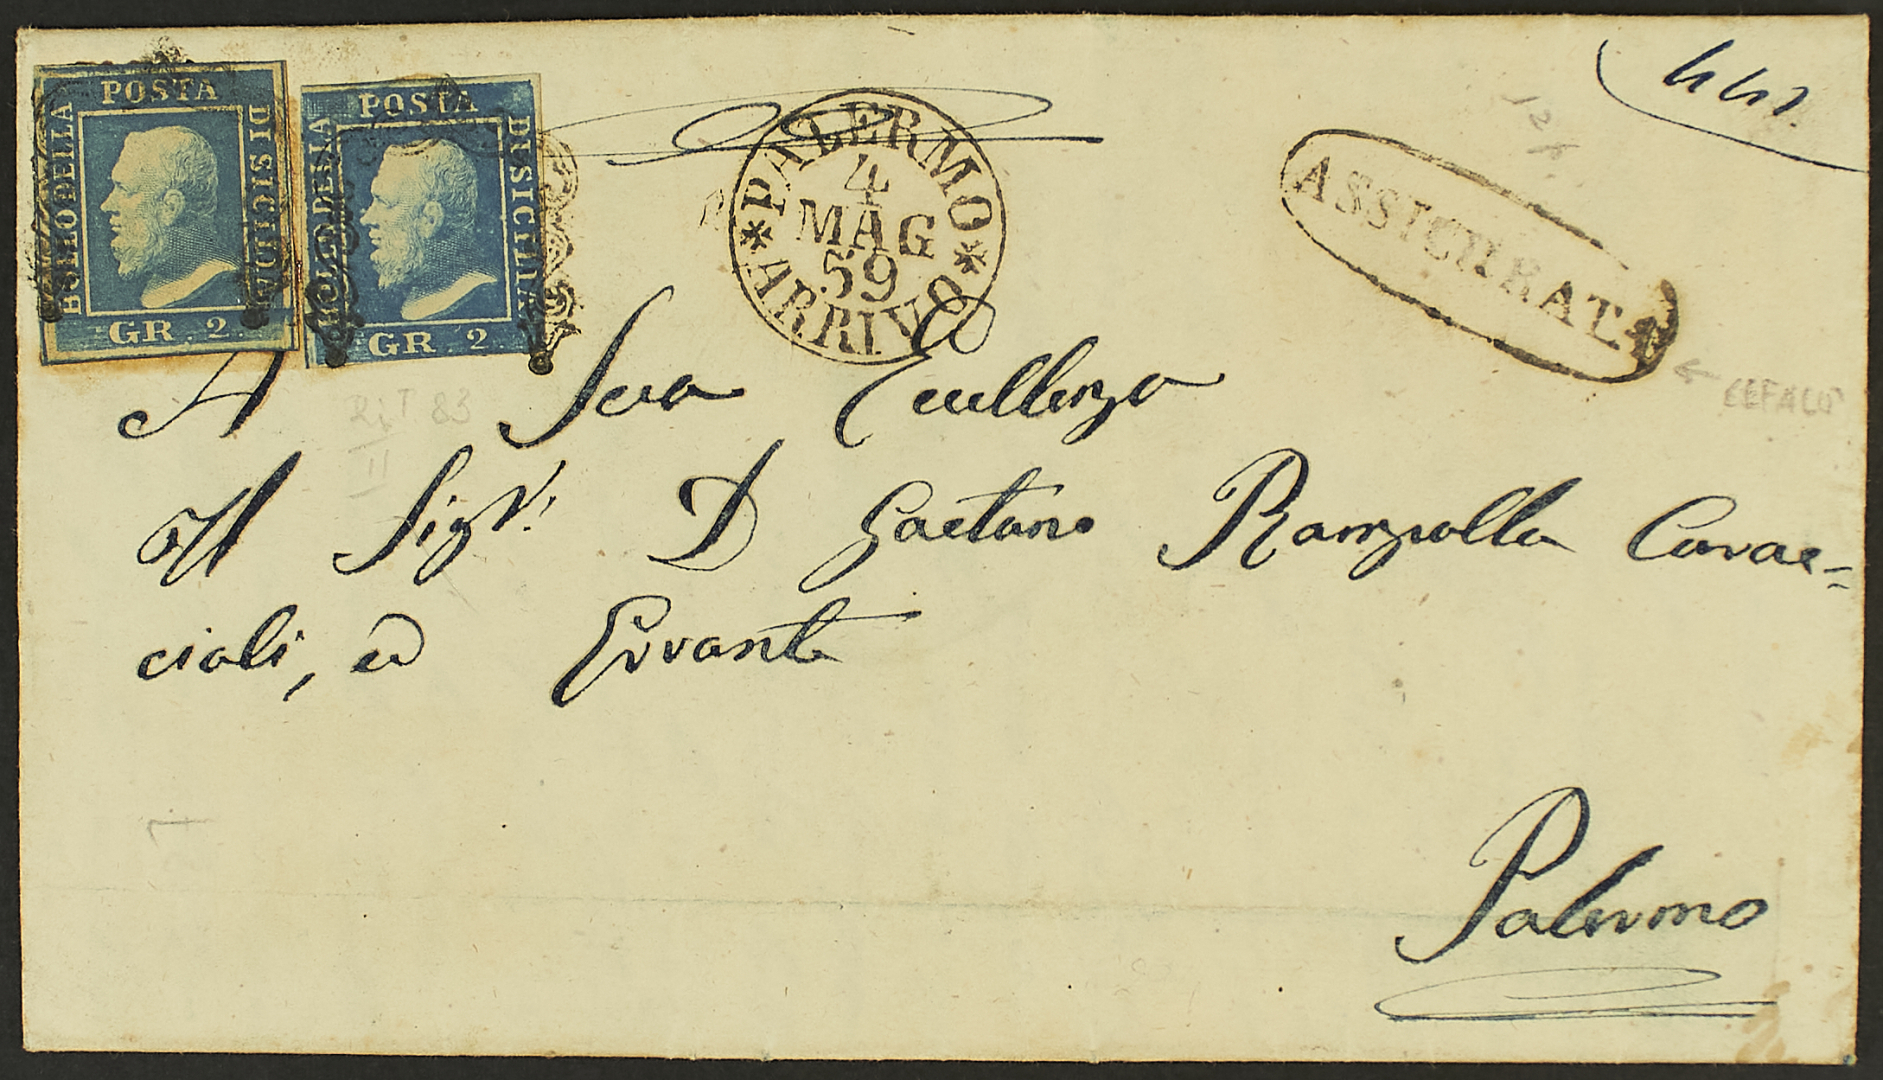 POSTA
BOLLO DELLA
DI SICILIA
GR. 2.
POSTA
BOLLO DELLA
DI SICILIA
GR. 2.
PALERMO
4
MAG
59
ARRIVO
ASSICURATA
CEFALU'
A Sua Eccellenza
Il Sigr. D Gaetano Rampolla Carac=
cioli, ed Errante
Palermo